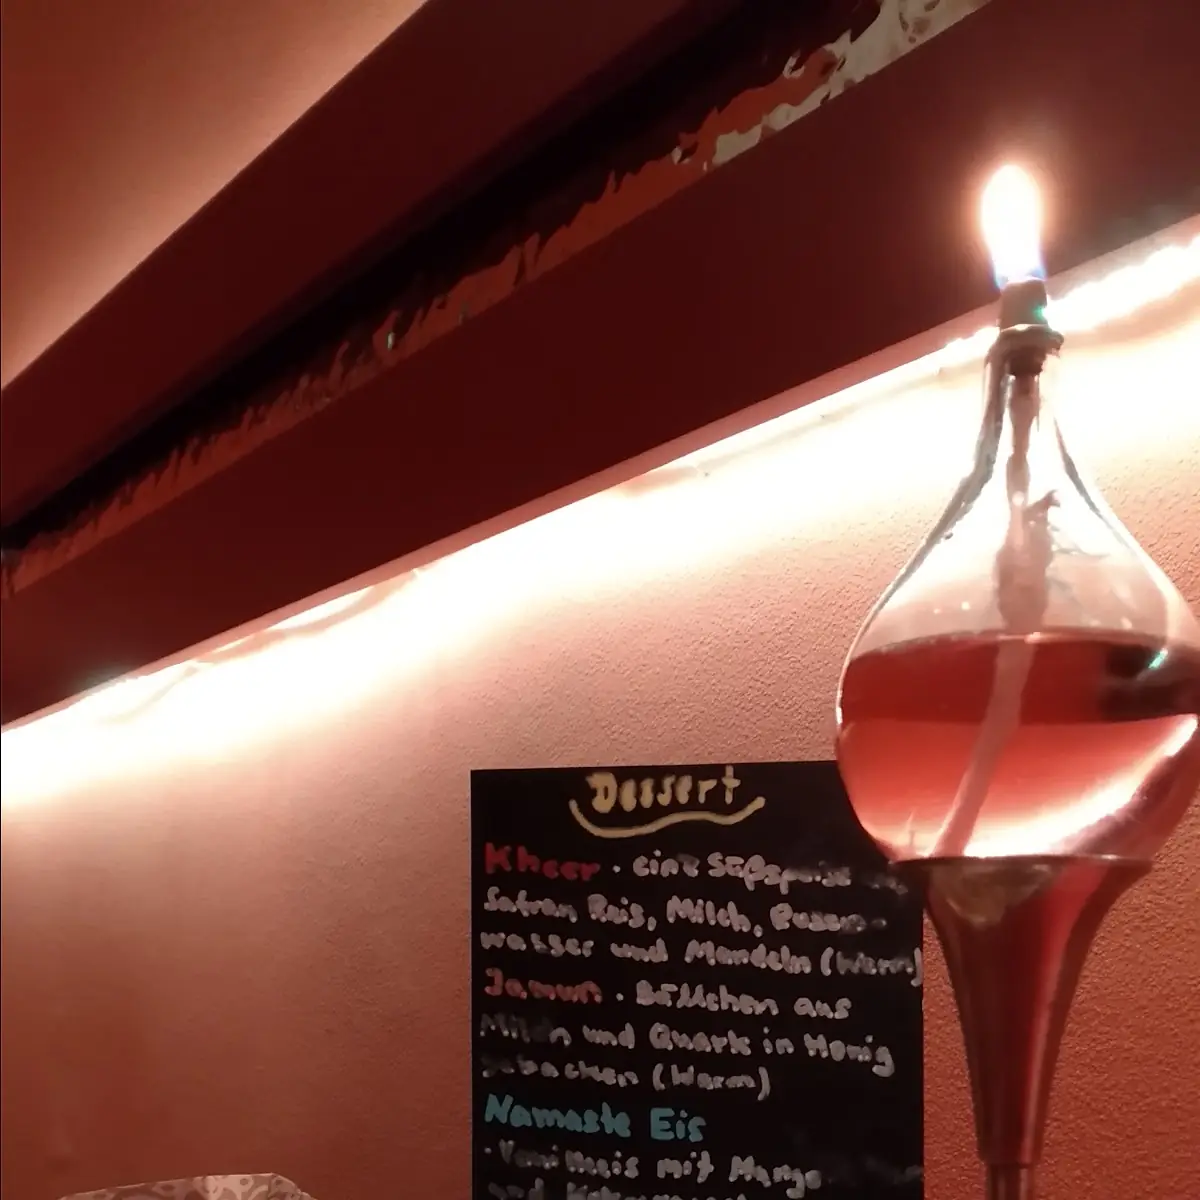 Dessert
Kheer · eine Süßspeise
Safran Reis, Milch, Rosen-
wasser und Mandeln (Warm)
Jamun · Bällchen aus
Milch und Quark in Honig
gebacken (Warm)
Namaste Eis
· Vanilleeis mit Mango
und